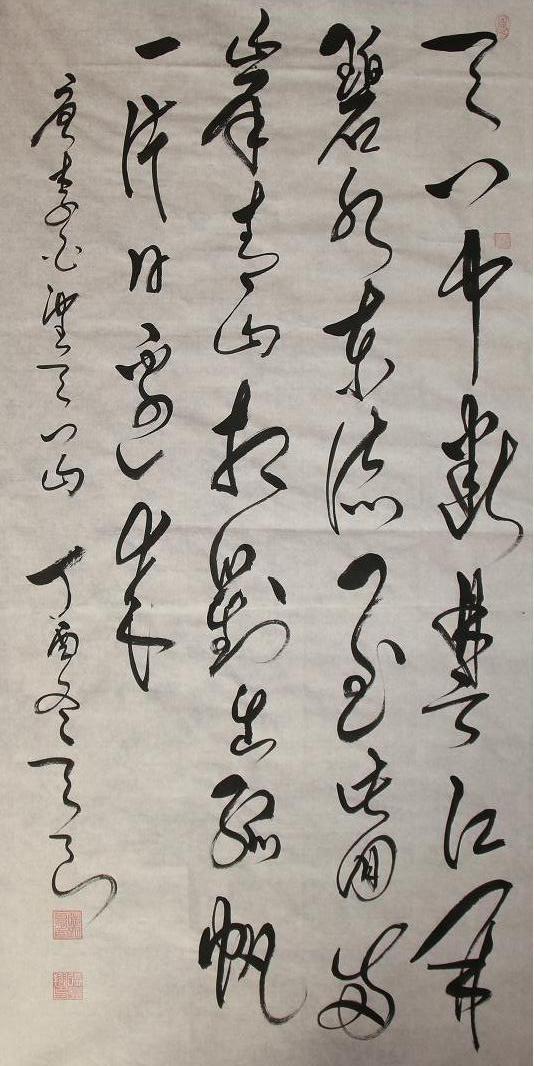 天门中断楚江開
碧水东流至此回两
岸青山相對出孤帆
一片日邊来
唐李白望天门山 丁酉冬